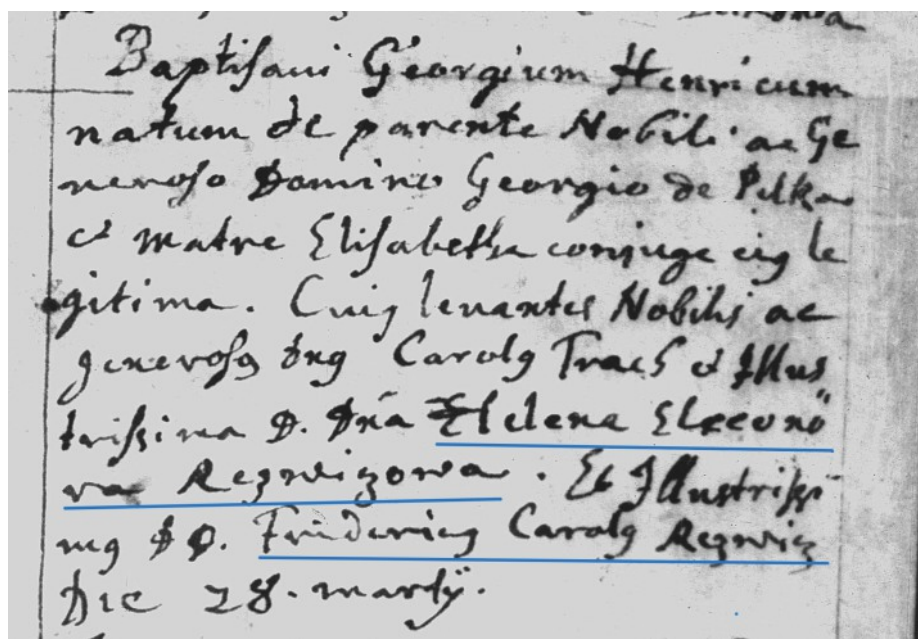 Baptisavi Georgium Henricum
natum de parente Nobili ac Ge
neroso Domino Georgio de Pelka
et matre Elisabetha conjuge eig le
gitima. Cuig levantes Nobilis ac
generosg dng Carolg Trach et Illus
trissima D. Dna Helena Eleono
ra Regwizowa. Et Illustrissi
mg DD. Fridericg Carolg Regwiz
Die 28. martij.